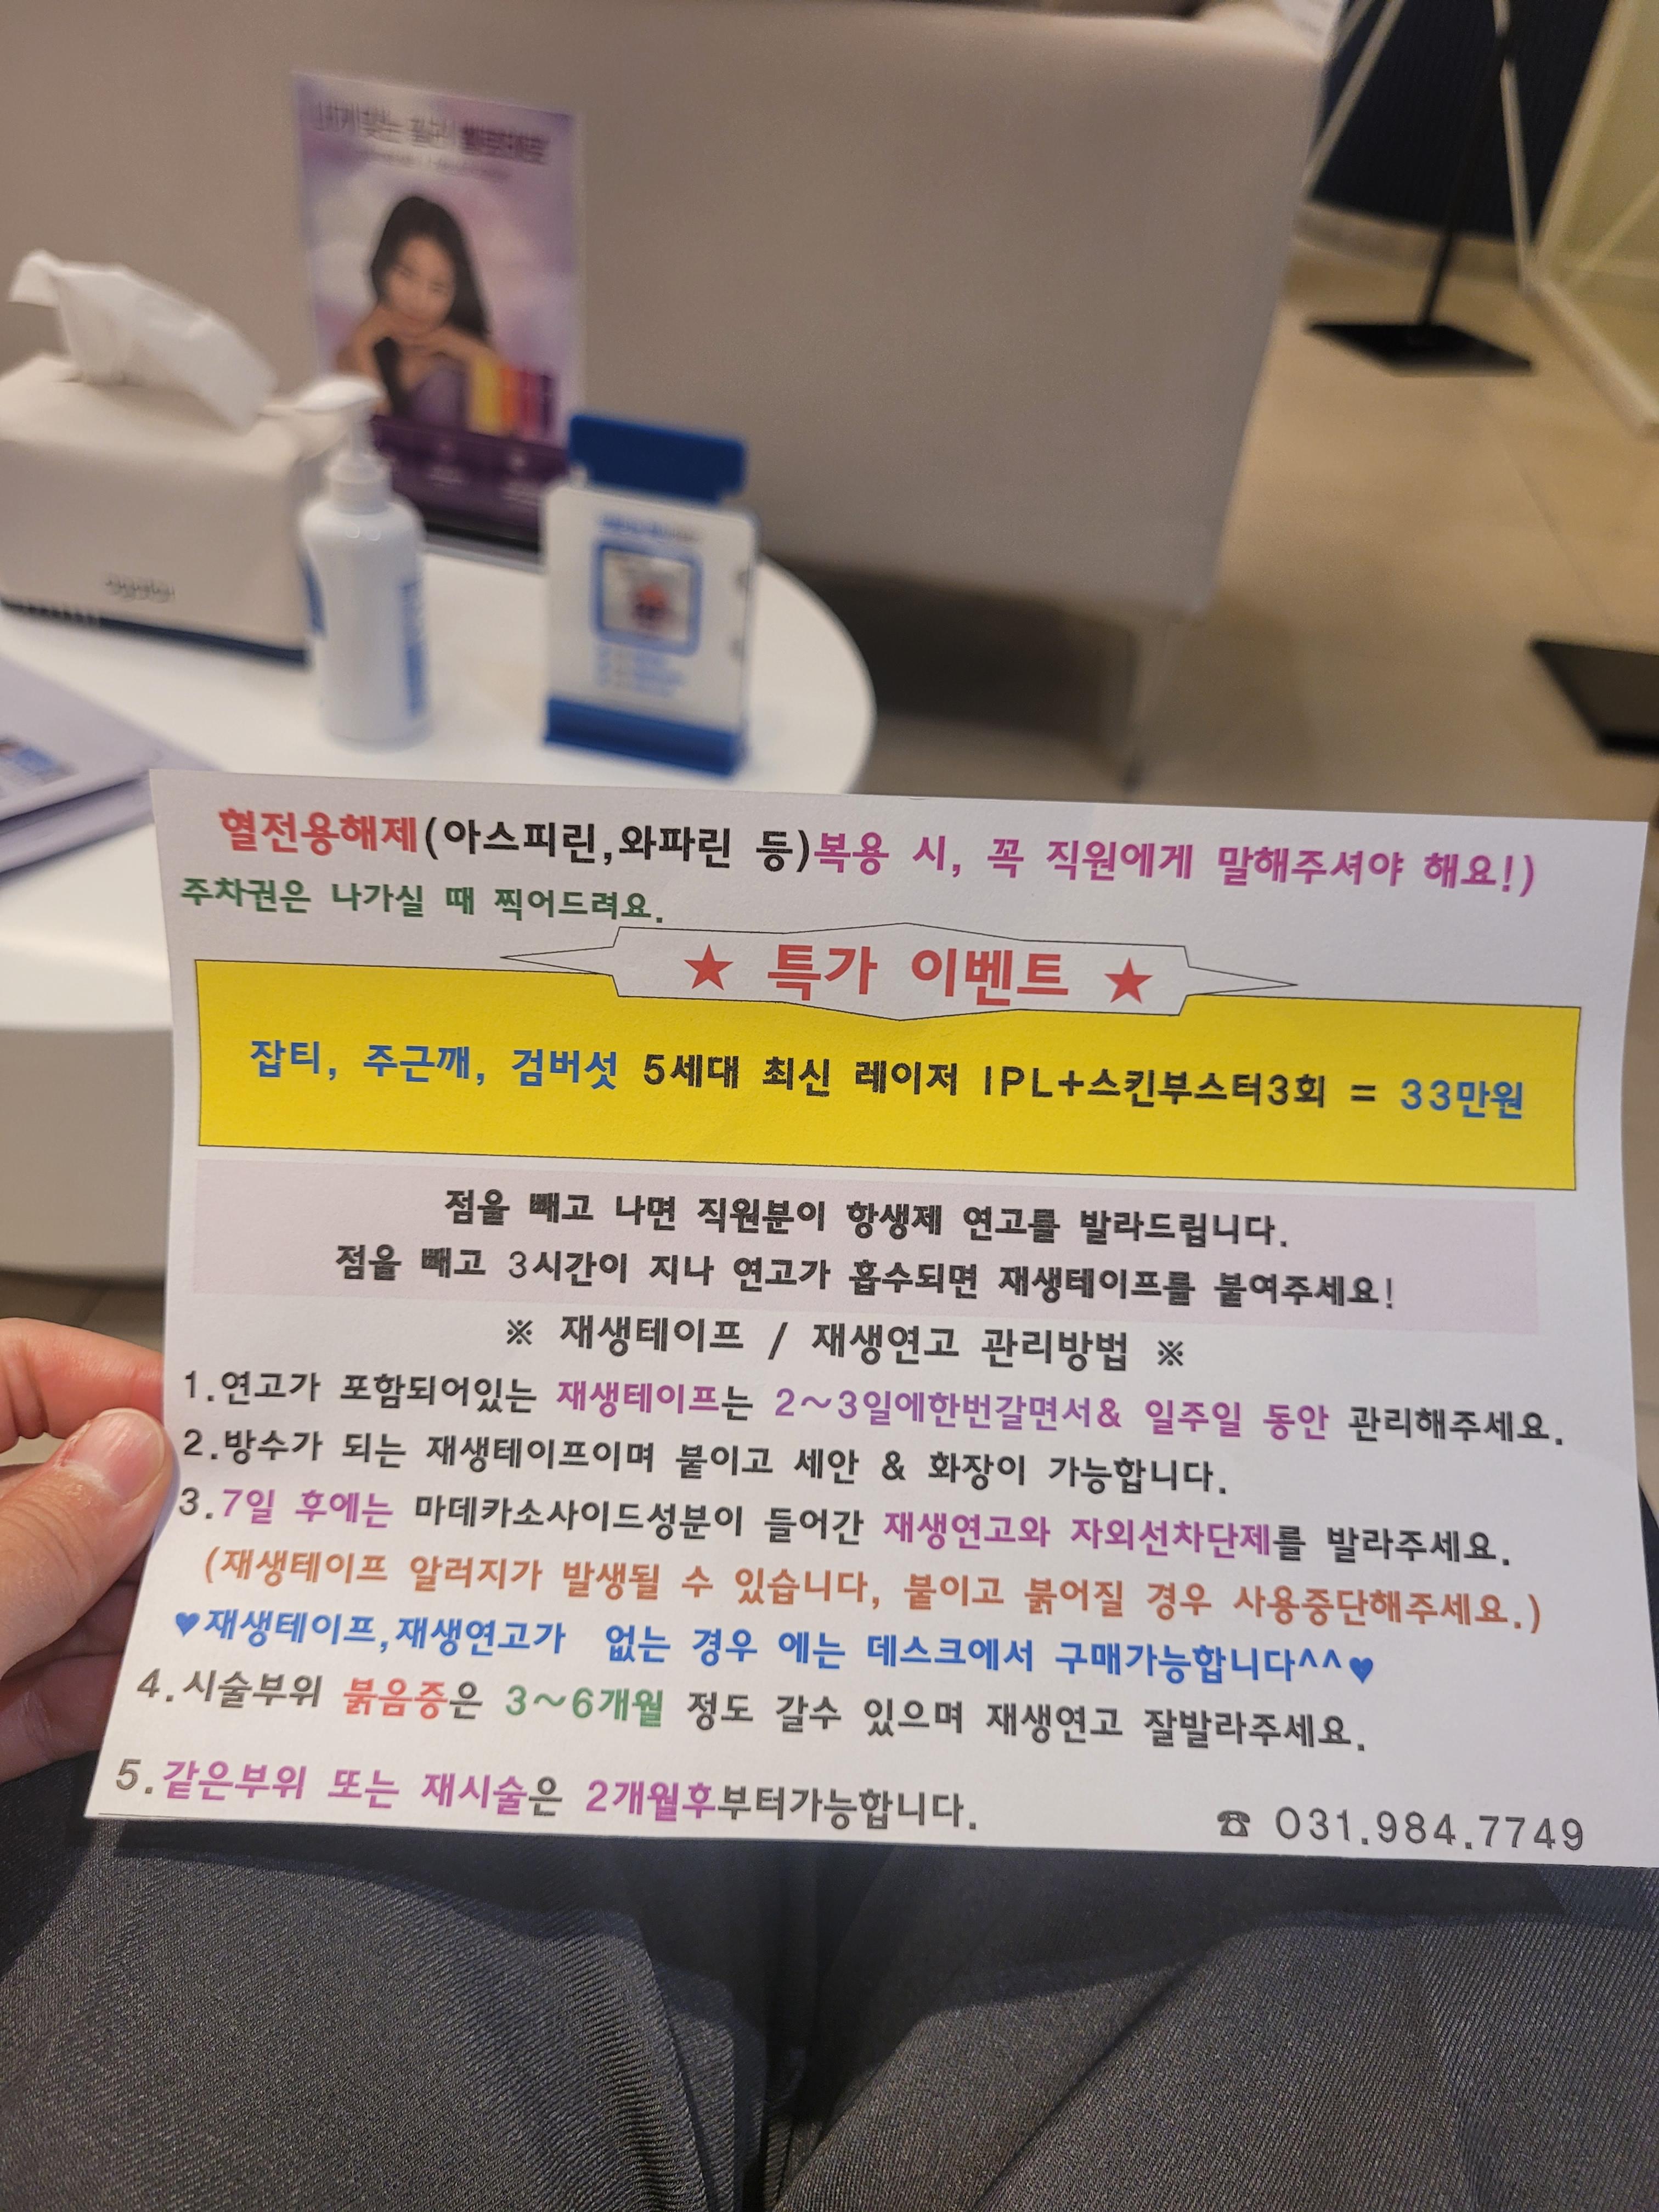 혈전용해제(아스피린,와파린 등)복용 시, 꼭 직원에게 말해주셔야 해요!)
주차권은 나가실 때 찍어드려요.
★ 특가 이벤트 ★
잡티, 주근깨, 검버섯 5세대 최신 레이저 IPL+스킨부스터3회 = 33만원
점을 빼고 나면 직원분이 항생제 연고를 발라드립니다.
점을 빼고 3시간이 지나 연고가 흡수되면 재생테이프를 붙여주세요!
※ 재생테이프 / 재생연고 관리방법 ※
1.연고가 포함되어있는 재생테이프는 2~3일에한번갈면서& 일주일 동안 관리해주세요.
2.방수가 되는 재생테이프이며 붙이고 세안 & 화장이 가능합니다.
3.7일 후에는 마데카소사이드성분이 들어간 재생연고와 자외선차단제를 발라주세요.
(재생테이프 알러지가 발생될 수 있습니다, 붙이고 붉어질 경우 사용중단해주세요.)
♥재생테이프,재생연고가 없는 경우 에는 데스크에서 구매가능합니다^^♥
4.시술부위 붉음증은 3~6개월 정도 갈수 있으며 재생연고 잘발라주세요.
5.같은부위 또는 재시술은 2개월후부터가능합니다.
☎ 031.984.7749